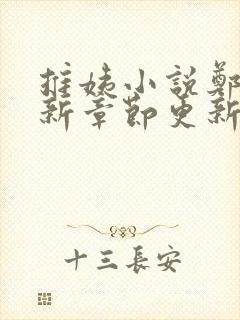 推姨小说鄭
新章節更新
十三長安